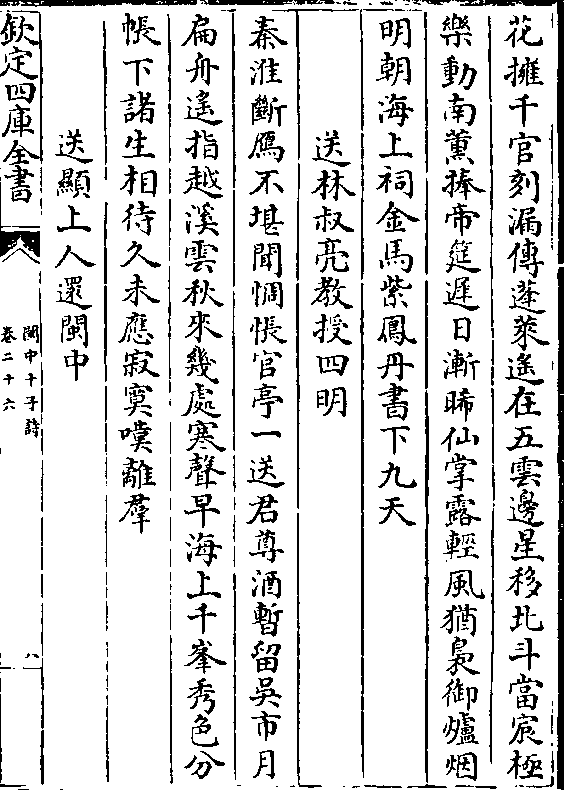 花擁千官刻漏傳蓬萊遙在五雲邊星移北斗當宸極
樂動南薰捧帝筵遲日漸晞仙掌露輕風猶裊御爐烟
明朝海上祠金馬紫鳳丹書下九天
送林叔亮教授四明
秦淮斷鴈不堪聞惆悵官亭一送君尊酒暫留吳市月
扁舟遙指越溪雲秋來幾處寒聲早海上千峯秀色分
帳下諸生相待久未應寂寞嘆離羣
送顯上人還閩中
欽定四庫全書
閩中十子詩
卷二十六
八